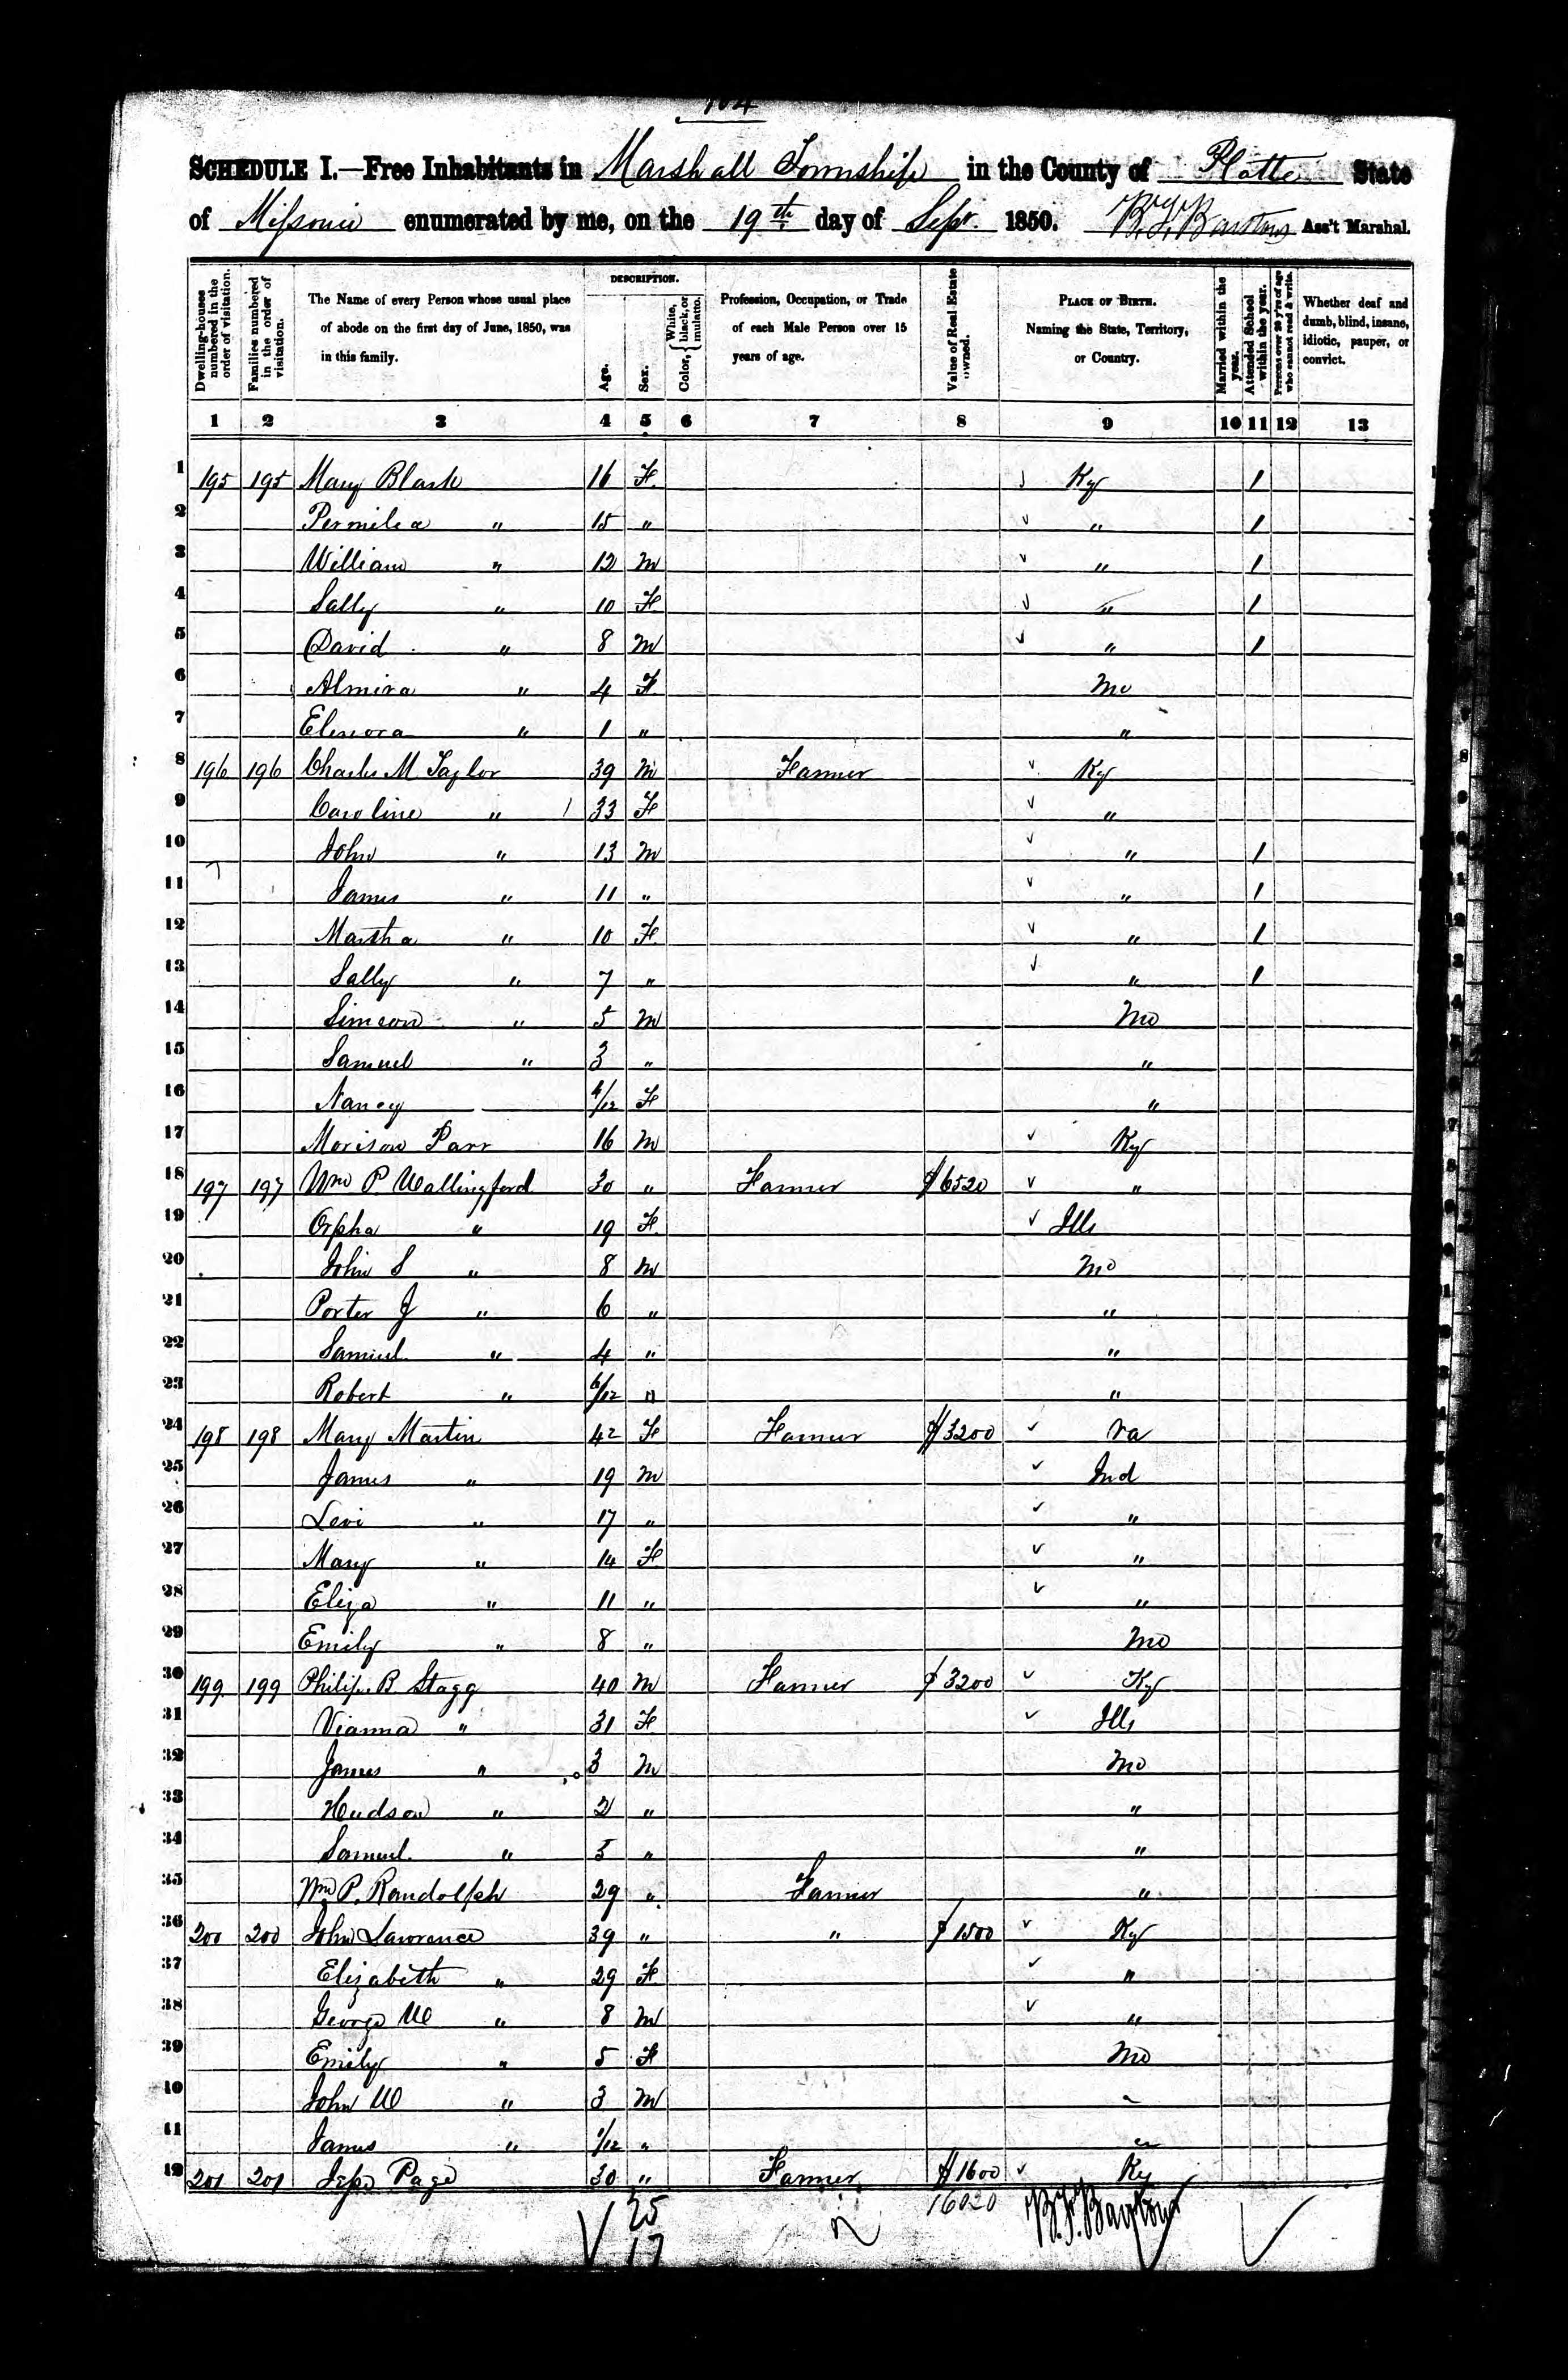 104
SCHEDULE I.—Free Inhabitants in Marshall Township in the County of Platte State
of Missouri enumerated by me, on the 19th day of Sept. 1850. Ass't Marshal.
Dwelling-houses numbered in the order of visitation.
Families numbered in the order of visitation.
The Name of every Person whose usual place of abode on the first day of June, 1850, was in this family.
DESCRIPTION.
Age.
Sex.
Color, { White, black, or mulatto.
Profession, Occupation, or Trade of each Male Person over 15 years of age.
Value of Real Estate owned.
PLACE OF BIRTH. Naming the State, Territory, or Country.
Married within the year.
Attended School within the year.
Persons over 20 y'rs of age who cannot read & write.
Whether deaf and dumb, blind, insane, idiotic, pauper, or convict.
1 2 3 4 5 6 7 8 9 10 11 12 13
1 195 195 Mary 16 F. Ky 1
2 Permilea " 15 " " 1
3 William " 12 M " 1
4 Sally " 10 F " 1
5 David " 8 M " 1
6 Almira " 4 F Mo
7 Elenora " 1 " "
8 196 196 Charles M Taylor 39 M Farmer Ky
9 Caroline " 33 F "
10 John " 13 M " 1
11 James " 11 " " 1
12 Martha " 10 F " 1
13 Sally " 7 " " 1
14 Simeon " 5 M Mo
15 Samuel " 3 " "
16 Nancy /12 F "
17 Morison Parr 16 M Ky
18 197 197 Wm P Wallingford 30 " Farmer $6520 "
19 Orpha " 19 F. Ills
20 John S " 8 M Mo
21 Porter J " 6 " "
22 Samuel " 4 " "
23 Robert " 6/12 " "
24 198 198 Mary Martin 42 F Farmer $3200 Va
25 James " 19 M Ind
26 Levi " 17 " "
27 Mary " 14 F "
28 Eliza " 11 " "
29 Emily " 8 " Mo
30 199 199 Philip B Stagg 40 M Farmer $3200 Ky
31 Vianna " 31 F Ills
32 James " 3 M Mo
33 Hudson " 2 " "
34 Samuel " 5 " "
35 Wm P. Randolph 29 " Farmer "
36 200 200 John Lawrence 39 " " $1500 Ky
37 Elizabeth " 29 F "
38 George W " 8 M "
39 Emily " 5 F Mo
10 John W " 3 M "
11 James " 1/12 " "
12 201 201 Page 30 " Farmer $1600 Ky
25 16020
17